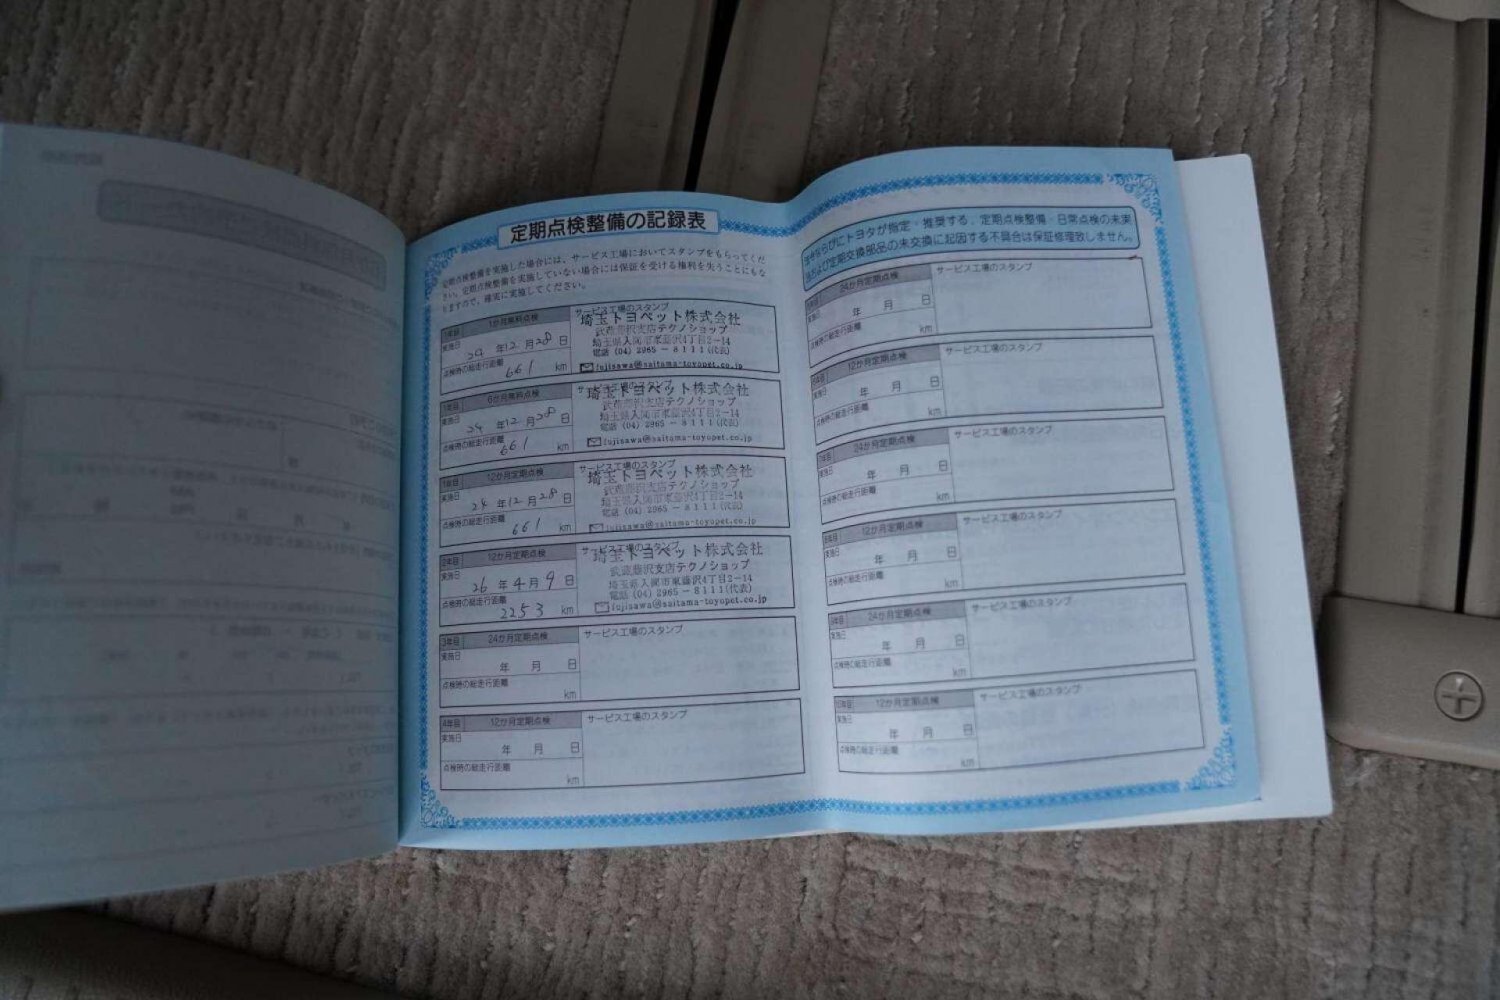 定期点検整備の記録表
定期点検整備を実施した場合には、サービス工場においてスタンプをもらってくだ
さい。定期点検整備を実施していない場合には保証を受ける権利を失うことにもな
りますので、確実に実施してください。
1年目 1か月無料点検 サービス工場のスタンプ
実施日 24年12月28日
点検時の総走行距離 661 km
埼玉トヨペット株式会社
武蔵藤沢支店テクノショップ
埼玉県入間市東藤沢4丁目2-14
電話 (04) 2965-8111(代表)
fujisawa@saitama-toyopet.co.jp
1年目 6か月無料点検 サービス工場のスタンプ
実施日 24年12月28日
点検時の総走行距離 661 km
埼玉トヨペット株式会社
武蔵藤沢支店テクノショップ
埼玉県入間市東藤沢4丁目2-14
電話 (04) 2965-8111(代表)
fujisawa@saitama-toyopet.co.jp
1年目 12か月定期点検 サービス工場のスタンプ
実施日 24年12月28日
点検時の総走行距離 661 km
埼玉トヨペット株式会社
武蔵藤沢支店テクノショップ
埼玉県入間市東藤沢4丁目2-14
電話 (04) 2965-8111(代表)
fujisawa@saitama-toyopet.co.jp
2年目 12か月定期点検 サービス工場のスタンプ
実施日 26年4月9日
点検時の総走行距離 2253 km
埼玉トヨペット株式会社
武蔵藤沢支店テクノショップ
埼玉県入間市東藤沢4丁目2-14
電話 (04) 2965-8111(代表)
fujisawa@saitama-toyopet.co.jp
3年目 24か月定期点検 サービス工場のスタンプ
実施日 年 月 日
点検時の総走行距離 km
4年目 12か月定期点検 サービス工場のスタンプ
実施日 年 月 日
点検時の総走行距離 km
ならびにトヨタが指定・推奨する、定期点検整備・日常点検の未実
および定期交換部品の未交換に起因する不具合は保証修理致しません。
24か月定期点検 サービス工場のスタンプ
実施日 年 月 日
点検時の総走行距離 km
12か月定期点検 サービス工場のスタンプ
実施日 年 月 日
点検時の総走行距離 km
24か月定期点検 サービス工場のスタンプ
実施日 年 月 日
点検時の総走行距離 km
12か月定期点検 サービス工場のスタンプ
実施日 年 月 日
点検時の総走行距離 km
9年目 24か月定期点検 サービス工場のスタンプ
実施日 年 月 日
点検時の総走行距離 km
10年目 12か月定期点検 サービス工場のスタンプ
実施日 年 月 日
点検時の総走行距離 km